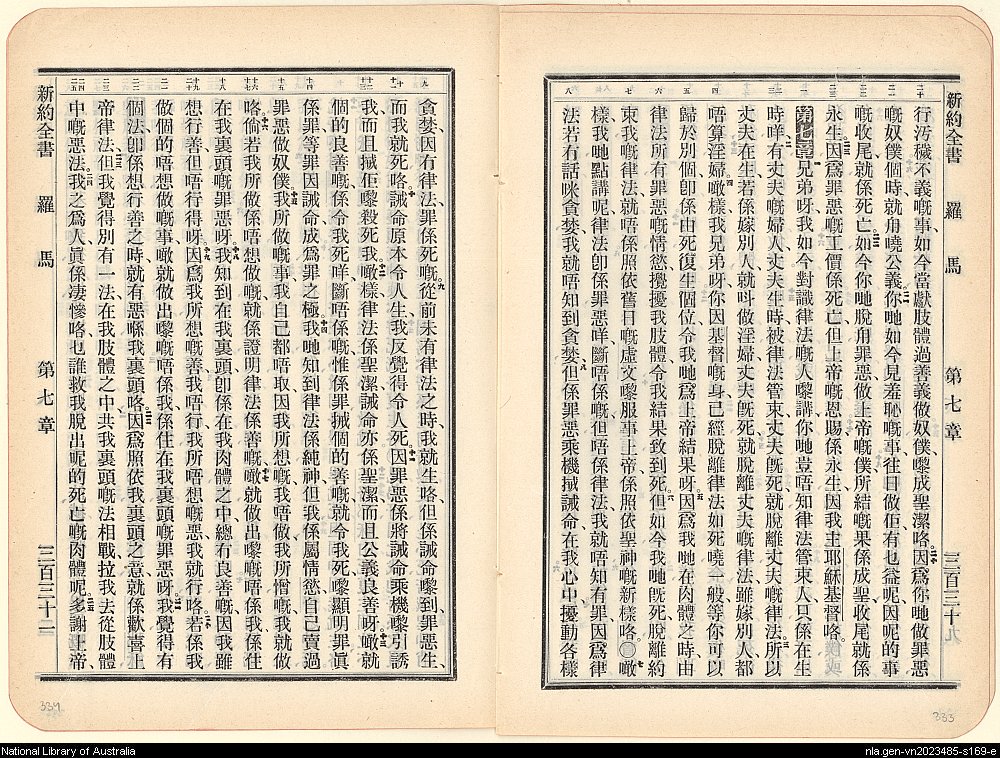 新約全書 羅馬 第七章 三百三十
行汚穢不義嘅事、如今當獻肢體過善義做奴僕、嚟成聖潔咯因爲你哋做罪惡
嘅奴僕個時、就甪曉公義、你哋如今見羞恥嘅事、往日做佢有乜益呢、因呢的事
嘅收尾、就係死亡、如今你哋脫甪罪惡、做上帝嘅僕、所結嘅果係成聖、收尾就係
永生、因爲罪惡嘅工價係死亡、但上帝嘅恩賜係永生、因我主耶穌基督咯、
第七章兄弟呀、我如今對識律法嘅人嚟講、你哋豈唔知律法管束人只係在生
時咩、有丈夫嘅婦人、丈夫生時、被律法管束、丈夫旣死、就脫離丈夫嘅律法、所以
丈夫在生、若係嫁別人、就呌做淫婦、丈夫旣死、就脫離丈夫嘅律法、雖嫁別人、都
唔算淫婦、噉樣我兄弟呀、你因基督嘅身、己經脫離律法、如死曉一般、等你可以
歸於別個、卽係由死復生個位、令我哋爲上帝結果呀、因爲我哋在肉體之時、由
律法所有罪惡嘅情慾、攪擾我肢體、令我結果致到死、但如今我哋旣死、脫離約
束我嘅律法、就唔係照依舊日嘅虛文嚟服事上帝、係照依聖神嘅新樣咯、○噉
樣我哋點講呢、律法卽係罪惡咩、斷唔係嘅、但唔係律法、我就唔知有罪、因爲律
法若冇話咪貪婪、我就唔知到貪婪、但係罪惡乘機搣誡命、在我心中擾動各樣
333
貪婪、因冇律法、罪係死嘅、從前未有律法之時、我就生咯、但係誡命嚟到、罪惡生、
而我就死咯、誡命原本令人生、我反覺得令人死、因罪惡係將誡命乘機嚟引誘
我、而且搣佢嚟殺死我、噉樣律法係聖潔、誡命亦係聖潔、而且公義良善呀、噉就
個的良善嘅、係令我死咩、斷唔係嘅、惟係罪搣個的善嘅、就令我死、嚟顯明罪眞
係罪、等罪因誡命成爲罪之極、我哋知到律法係純神、但我係屬情慾、自己賣過
罪惡做奴僕、我所做嘅事、我自己都唔取、因我所想嘅、我唔做、我所憎嘅、我就做
咯、倘若我所做係唔想做嘅、就係證明律法係善嘅、噉就做出嚟嘅、唔係我、係住
在我裏頭嘅罪惡呀、我知到在我裏頭、卽係在我肉體之中、總冇良善嘅、因我雖
想行善、但唔行得呀、因爲我所想嘅善、我唔行、我所唔想嘅惡、我就行咯、若係我
做個的唔想做嘅事、噉就做出嚟嘅、唔係我、係住在我裏頭嘅罪惡呀、我覺得有
個法、卽係想行善之時、就有惡喺我裏頭咯、因爲照依我裏頭之意、就係歡喜上
帝律法、但我覺得別有一法、在我肢體之中、共我裏頭嘅法相戰、拉我去從肢體
中嘅惡法、我之爲人、眞係凄慘咯、乜誰救我脫出呢的死亡嘅肉體呢、多謝上帝、
新約全書 羅馬 第七章 三百三十二
334
National Library of Australia
nla.gen-vn2023485-s169-e